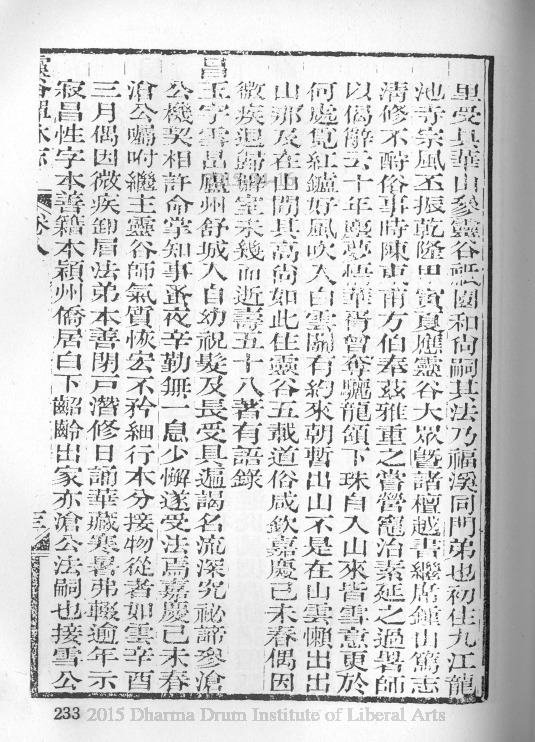 里受具華山參靈谷祇園和尚嗣其法乃福溪同門弟也初住九江龍
池寺宗風丕振乾隆甲寅夏應靈谷大眾曁諸檀越書繼席鍾山篤志
清修不酧俗事時陳東甫方伯奉茲雅重之嘗營寵治素延之過署師
以偈辭云十年塵夢悟華胥曾奪驪龍頷下珠自入山來皆雪意更於
何處覓紅鑪好風吹入白雲關有約來朝暫出山不是在山雲懶出出
山那及在山閒其高尚如此住靈谷五載道俗咸欽嘉慶己未春偶因
微疾退歸靜室未幾而逝壽五十八著有語錄
昌玉字雲昆廬州舒城人自幼祝髮及長受具遍謁名流深究祕諦參滄
公機契相許命掌知事蚤夜辛勤無一息少懈遂受法焉嘉慶己未春
滄公囑咐繼主靈谷師氣質恢宏不矜細行本分接物從者如雲辛酉
三月偶因微疾卸肩法弟本善閉戸潛修日誦華藏寒暑弗輟逾年示
寂昌性字本善籍本潁州僑居白下齠齡出家亦滄公法嗣也接雪公
靈谷禪林志
卷八
三
233 2015 Dharma Drum Institute of Liberal Arts